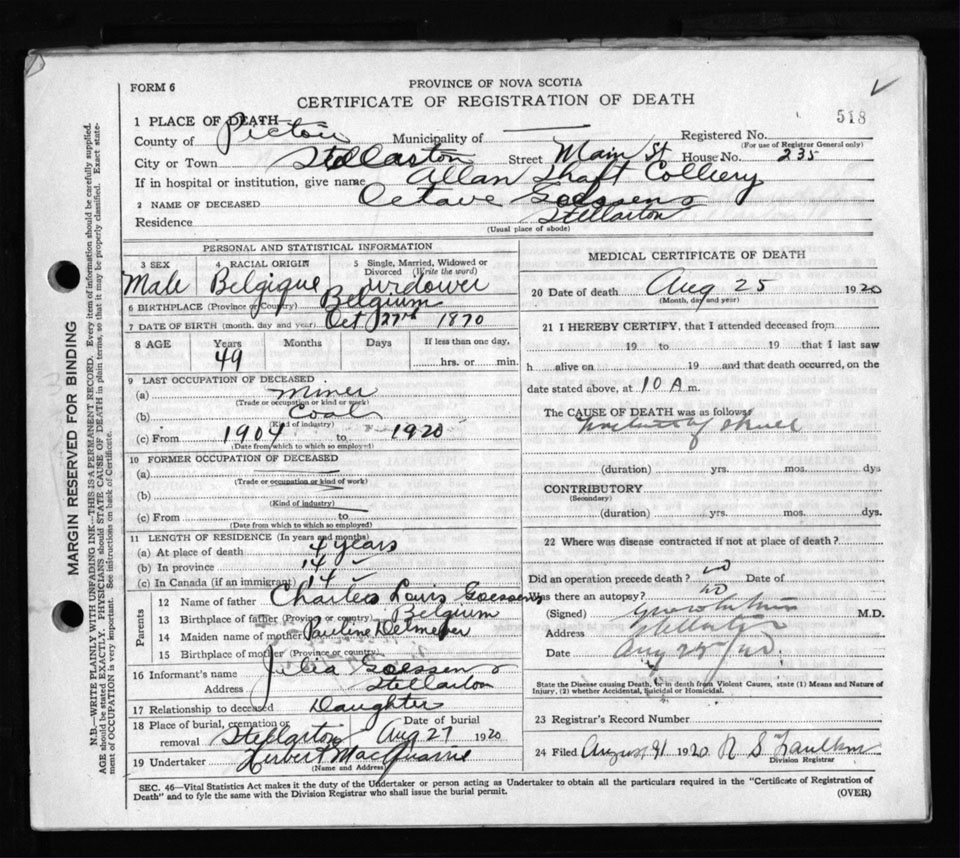 FORM 6
PROVINCE OF NOVA SCOTIA
CERTIFICATE OF REGISTRATION OF DEATH
518
1 PLACE OF DEATH
County of Pictou Municipality of Registered No.
(For use of Registrar General only)
City or Town Stellarton Street Main St House No. 235
If in hospital or institution, give name Allan Shaft Colliery
2 NAME OF DECEASED Octave Goessens
Residence Stellarton
(Usual place of abode)
PERSONAL AND STATISTICAL INFORMATION
3 SEX Male
4 RACIAL ORIGIN Belgique
5 Single, Married, Widowed or Divorced (Write the word) widower
6 BIRTHPLACE (Province or Country) Belgium
7 DATE OF BIRTH (month, day and year) Oct 27th 1870
8 AGE Years Months Days If less than one day,
49 hrs. or min.
9 LAST OCCUPATION OF DECEASED
(a) Miner
(Trade or occupation or kind or work)
(b) Coal
(Kind of industry)
(c) From 1904 to 1920
(Date from which to which so employed)
10 FORMER OCCUPATION OF DECEASED
(a)
(Trade or occupation or kind of work)
(b)
(Kind of industry)
(c) From to
(Date from which to which so employed)
11 LENGTH OF RESIDENCE (In years and months)
(a) At place of death 4 years
(b) In province 14
(c) In Canada (if an immigrant) 14
Parents
12 Name of father Charles Louis Goessens
13 Birthplace of father (Province or country) Belgium
14 Maiden name of mother Pauline
15 Birthplace of mother (Province or country)
16 Informant's name Julia Goessens
Address Stellarton
17 Relationship to deceased Daughter
18 Place of burial, cremation or removal Stellarton Date of burial Aug 27 1920
19 Undertaker MacQuarrie
(Name and Address)
MEDICAL CERTIFICATE OF DEATH
20 Date of death Aug 25 1920
(Month, day and year)
21 I HEREBY CERTIFY, that I attended deceased from
19 to 19 that I last saw
h alive on 19 and that death occurred, on the
date stated above, at 10 A m.
The CAUSE OF DEATH was as follows
of skull
(duration) yrs. mos. dys
CONTRIBUTORY
(Secondary)
(duration) yrs. mos. dys.
22 Where was disease contracted if not at place of death?
Did an operation precede death? no Date of
Was there an autopsy? no
(Signed) M.D.
Address Stellarton
Date Aug
State the Disease causing Death, or in death from Violent Causes, state (1) Means and Nature of
Injury, (2) whether Accidental, Suicidal or Homicidal.
23 Registrar's Record Number
24 Filed August 31 1920 R S
Division Registrar
SEC. 46—Vital Statistics Act makes it the duty of the Undertaker or person acting as Undertaker to obtain all the particulars required in the "Certificate of Registration of
Death" and to fyle the same with the Division Registrar who shall issue the burial permit.
(OVER)
MARGIN RESERVED FOR BINDING
N.B.—WRITE PLAINLY WITH UNFADING INK—THIS IS A PERMANENT RECORD. Every item of information should be carefully supplied.
AGE should be stated EXACTLY. PHYSICIANS should STATE CAUSE OF DEATH in plain terms, so that it may be properly classified. Exact state-
ment of OCCUPATION is very important. See instructions on back of Certificate.